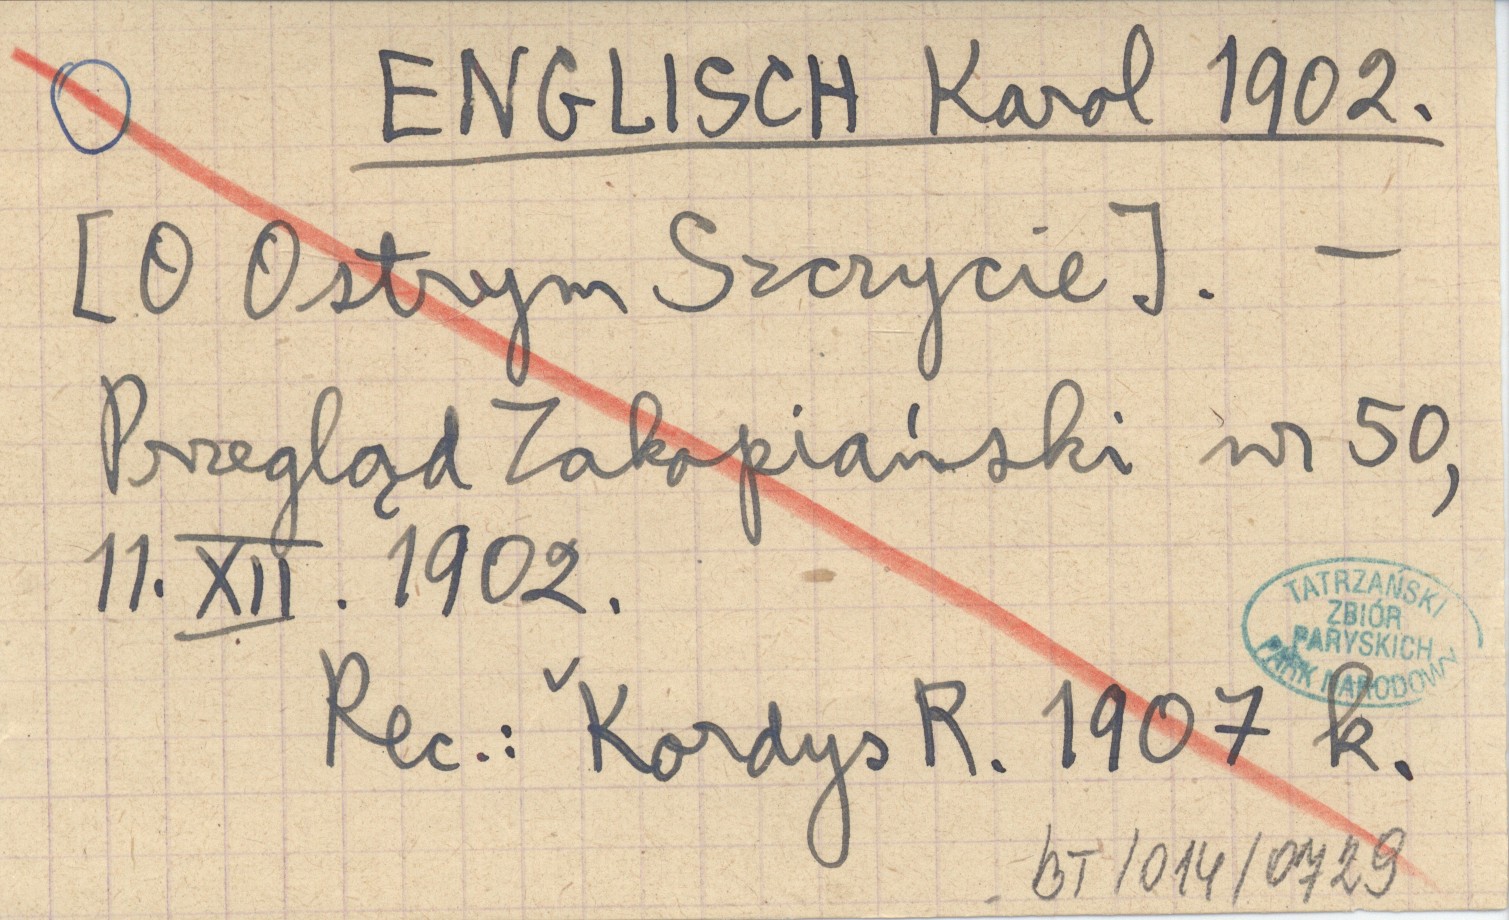 ENGLISCH Karol 1902.
[O Ostrym Szczycie]. —
Przegląd Zakopiański nr 50,
11. XII. 1902.
TATRZAŃSKI
ZBIÓR
PARYSKICH
PARK NARODOWY
Rec.: ˇKordys R. 1907 k.
BT/014/0729